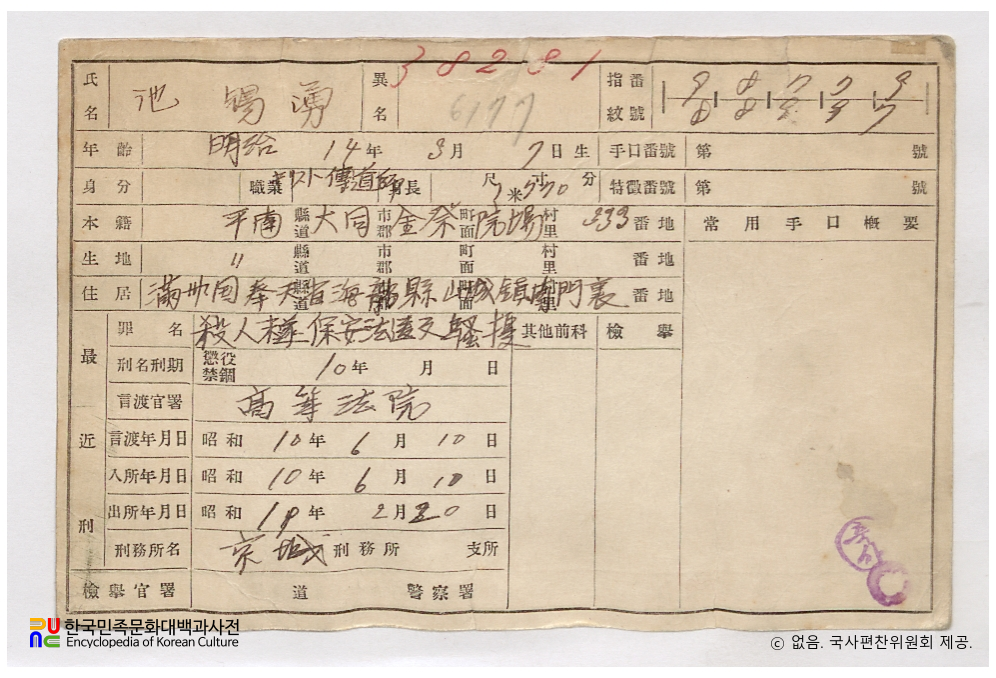 38281
氏名 池 錫湧 異名 6177 指紋番號
年齡 明治 14年 3月 7日生 手口番號 第 號
身分 職業 キリスト傳道師 身長 尺 寸 分 米 特徵番號 第 號
本籍 平南 縣道 大同 市郡 金祭 町面 院場 村里 333 番地 常用手口槪要
生地 〃 縣道 市郡 町面 村里 番地
住居 滿州国奉天省海龍縣山城鎭南門裏 番地
最近刑
罪名 殺人 保安法違反 騷擾 其他前科 檢擧
刑名刑期 懲役 禁錮 10年 月 日
言渡官署 高等法院
言渡年月日 昭和 10年 6月 10日
入所年月日 昭和 10年 6月 10日
出所年月日 昭和 19年 2月 20日
刑務所名 京城 刑務所 支所
檢擧官署 道 警察署
한국민족문화대백과사전
Encyclopedia of Korean Culture
ⓒ 없음. 국사편찬위원회 제공.